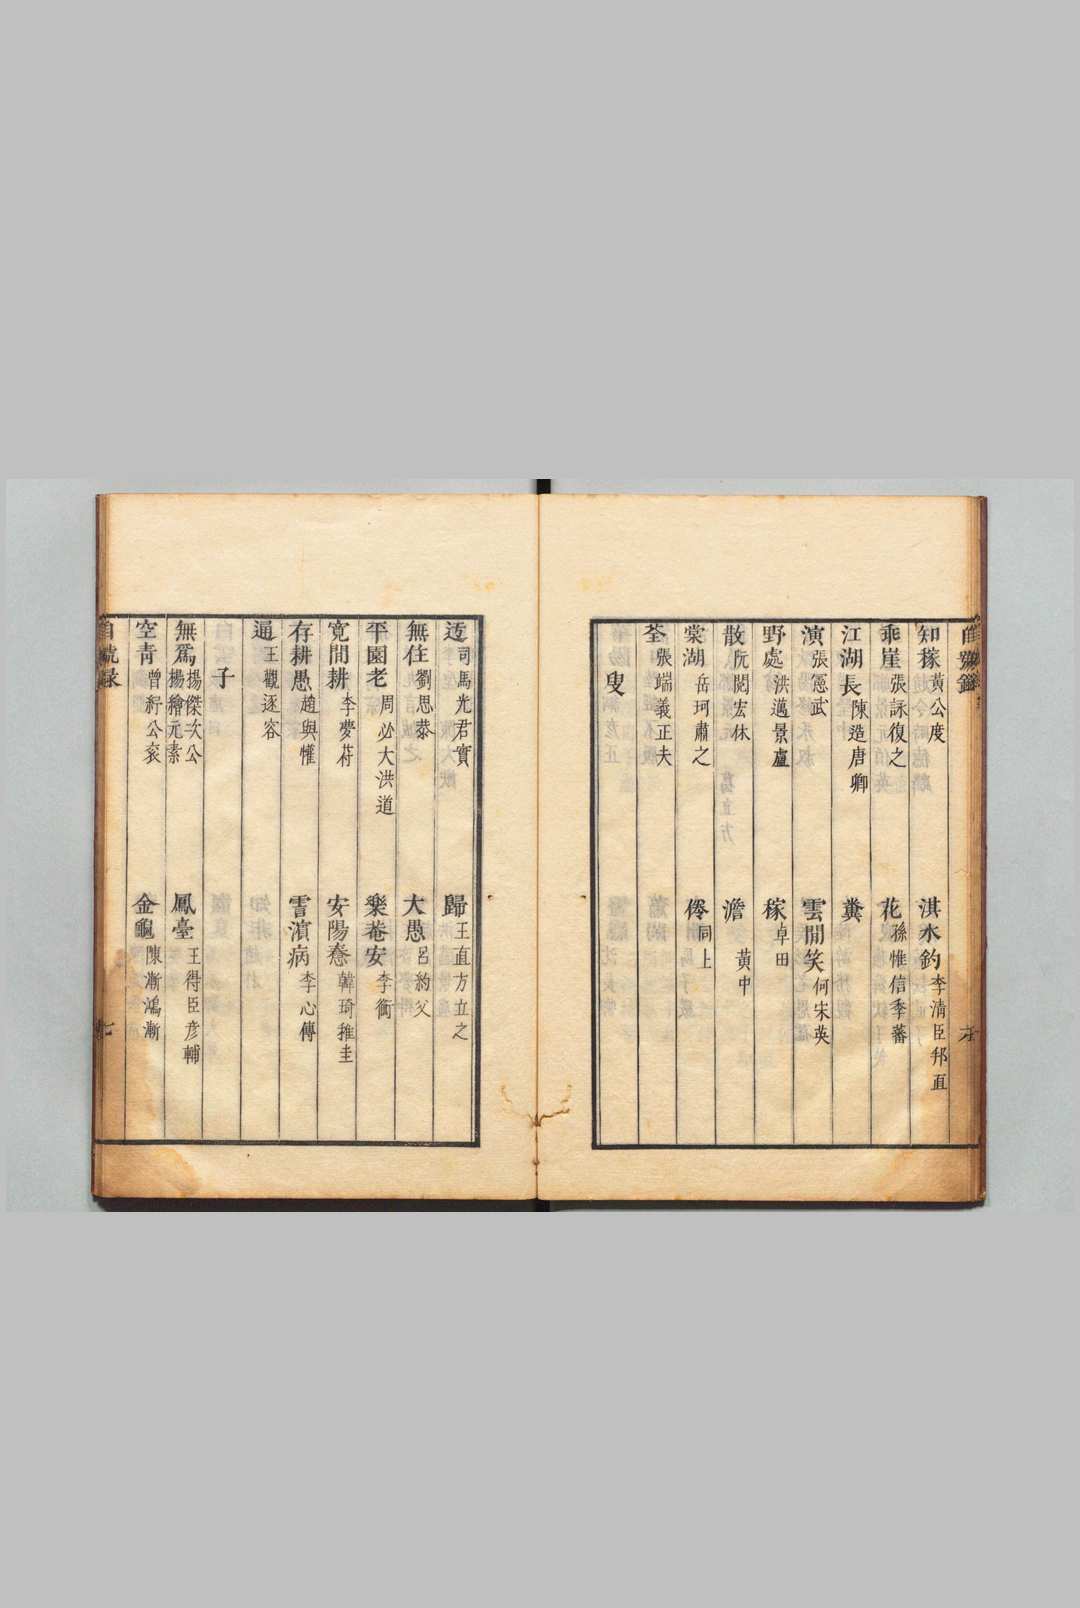 自號錄
六
知稼黃公度
淇水釣李清臣邦直
乖崖張詠復之
花孫惟信季蕃
江湖長陳造唐卿
糞
演張愿武
雲閒笑何宋英
野處洪邁景盧
稼卓田
散阮閱宏休
澹黃中
棠湖岳珂肅之
倦同上
荃張端義正夫
叟
迂司馬光君實
歸王直方立之
無住劉思恭
大愚呂約父
平園老周必大洪道
樂菴安李衡
寛閒耕李夢符
安陽戇韓琦稚圭
存耕愚趙與懽
霅濵病李心傳
通王觀逐客
子
無爲楊傑次公
楊繪元素
鳳臺王得臣彦輔
空青曾紆公衮
金龜陳漸鴻漸
自號錄
七